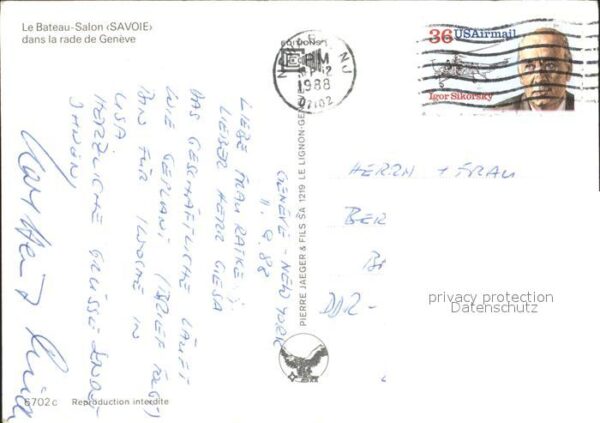 Le Bateau-Salon ‹SAVOIE›
dans la rade de Genève
36 USAirmail
Igor Sikorsky
NJ
PM
1988
07102
GENÈVE - NEW YORK
11. 9. 88
LIEBE FRAU RATKE,
LIEBER HERR GIESA
DAS GESCHÄFTLICHE LÄUFT
WIE GEPLANT (BRIEF FOLGT)
BIN FÜR 1 WOCHE IN
USA.
HERZLICHE GRÜSSE SENDET
IHNEN,
PIERRE JAEGER & FILS SA 1219 LE LIGNON-GENÈVE
HERRN + FRAU
BER
DDR-
privacy protection
Datenschutz
6702c Reproduction interdite